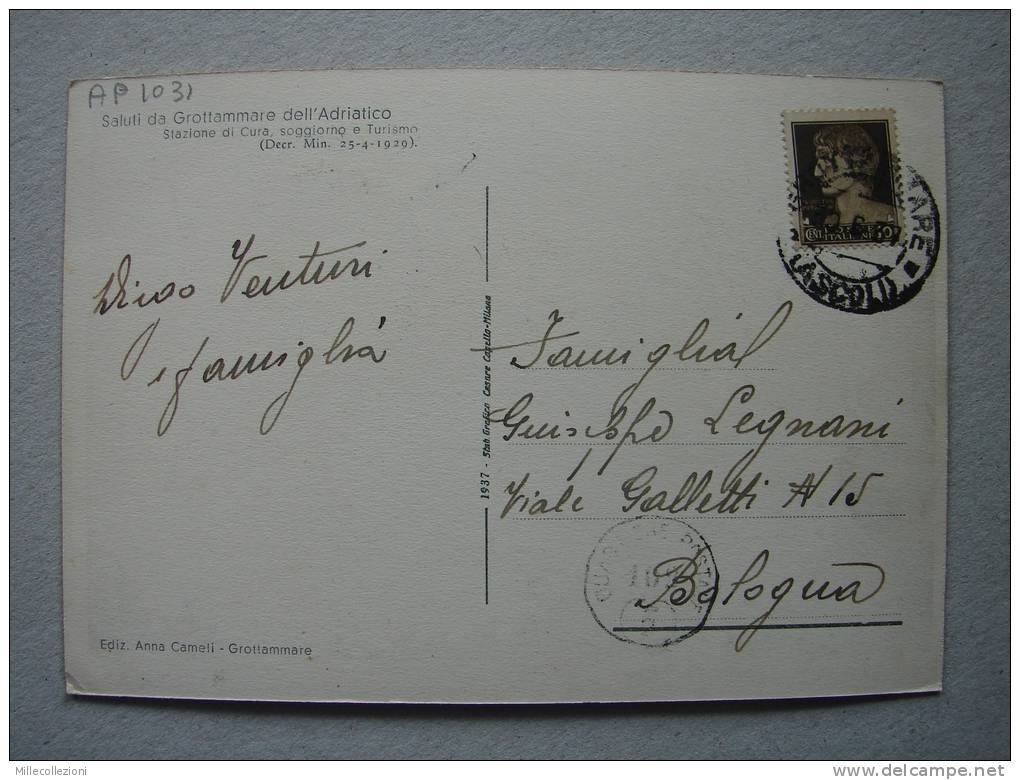 AP 1031
Saluti da Grottammare dell'Adriatico
Stazione di Cura, soggiorno e Turismo
(Decr. Min. 25-4-1929).
Venturi
e famiglia
1937 - Stab Grafico Cesare Capello-Milano
Famiglia
Guiseppe Legnani
Viale Galletti N 15
Bologna
CENT. POSTE 10
ITALIANE
TARE
(ASCOLI
Ediz. Anna Cameli - Grottammare
Millecollezioni
delcampe.net